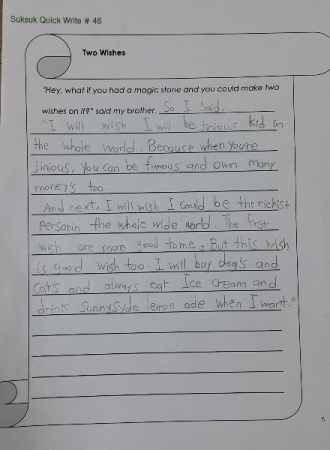 Suksuk Quick Write # 46
Two Wishes
"Hey, what if you had a magic stone and you could make two
wishes on it?" said my brother. So I said.
"I will wish I will be jinious kid in
the whole world. Because when you're
jinious, you can be famous and own many
money's too.
And next, I will wish I could be the richist
person in the whole wide world. The first
wish are more good to me. But this wish
is good wish too. I will buy dog's and
cat's and always eat Ice cream and
drink Sunnysyde lemon ade when I want."
5